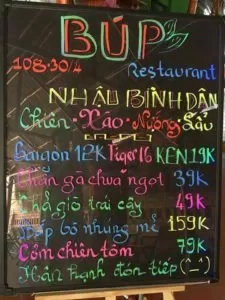 BÚP
108-30/4
Restaurant
NHẬU BÌNH DÂN
Chiên Xào Nướng Lẩu
Saigon 12K Tiger 16 KEN 19K
Chân gà chua ngọt 39K
Chả giò trái cây 49K
Bắp bò nhúng mẻ 159K
Cơm chiên tôm 79K
Hân hạnh đón tiếp (^_^)